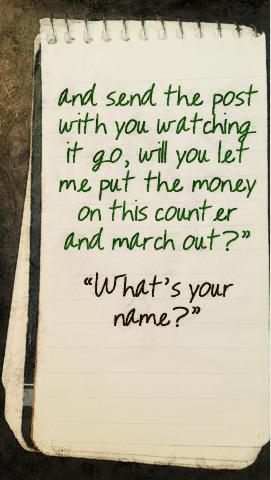 and send the post
with you watching
it go, will you let
me put the money
on this counter
and march out?”
“What’s your
name?”